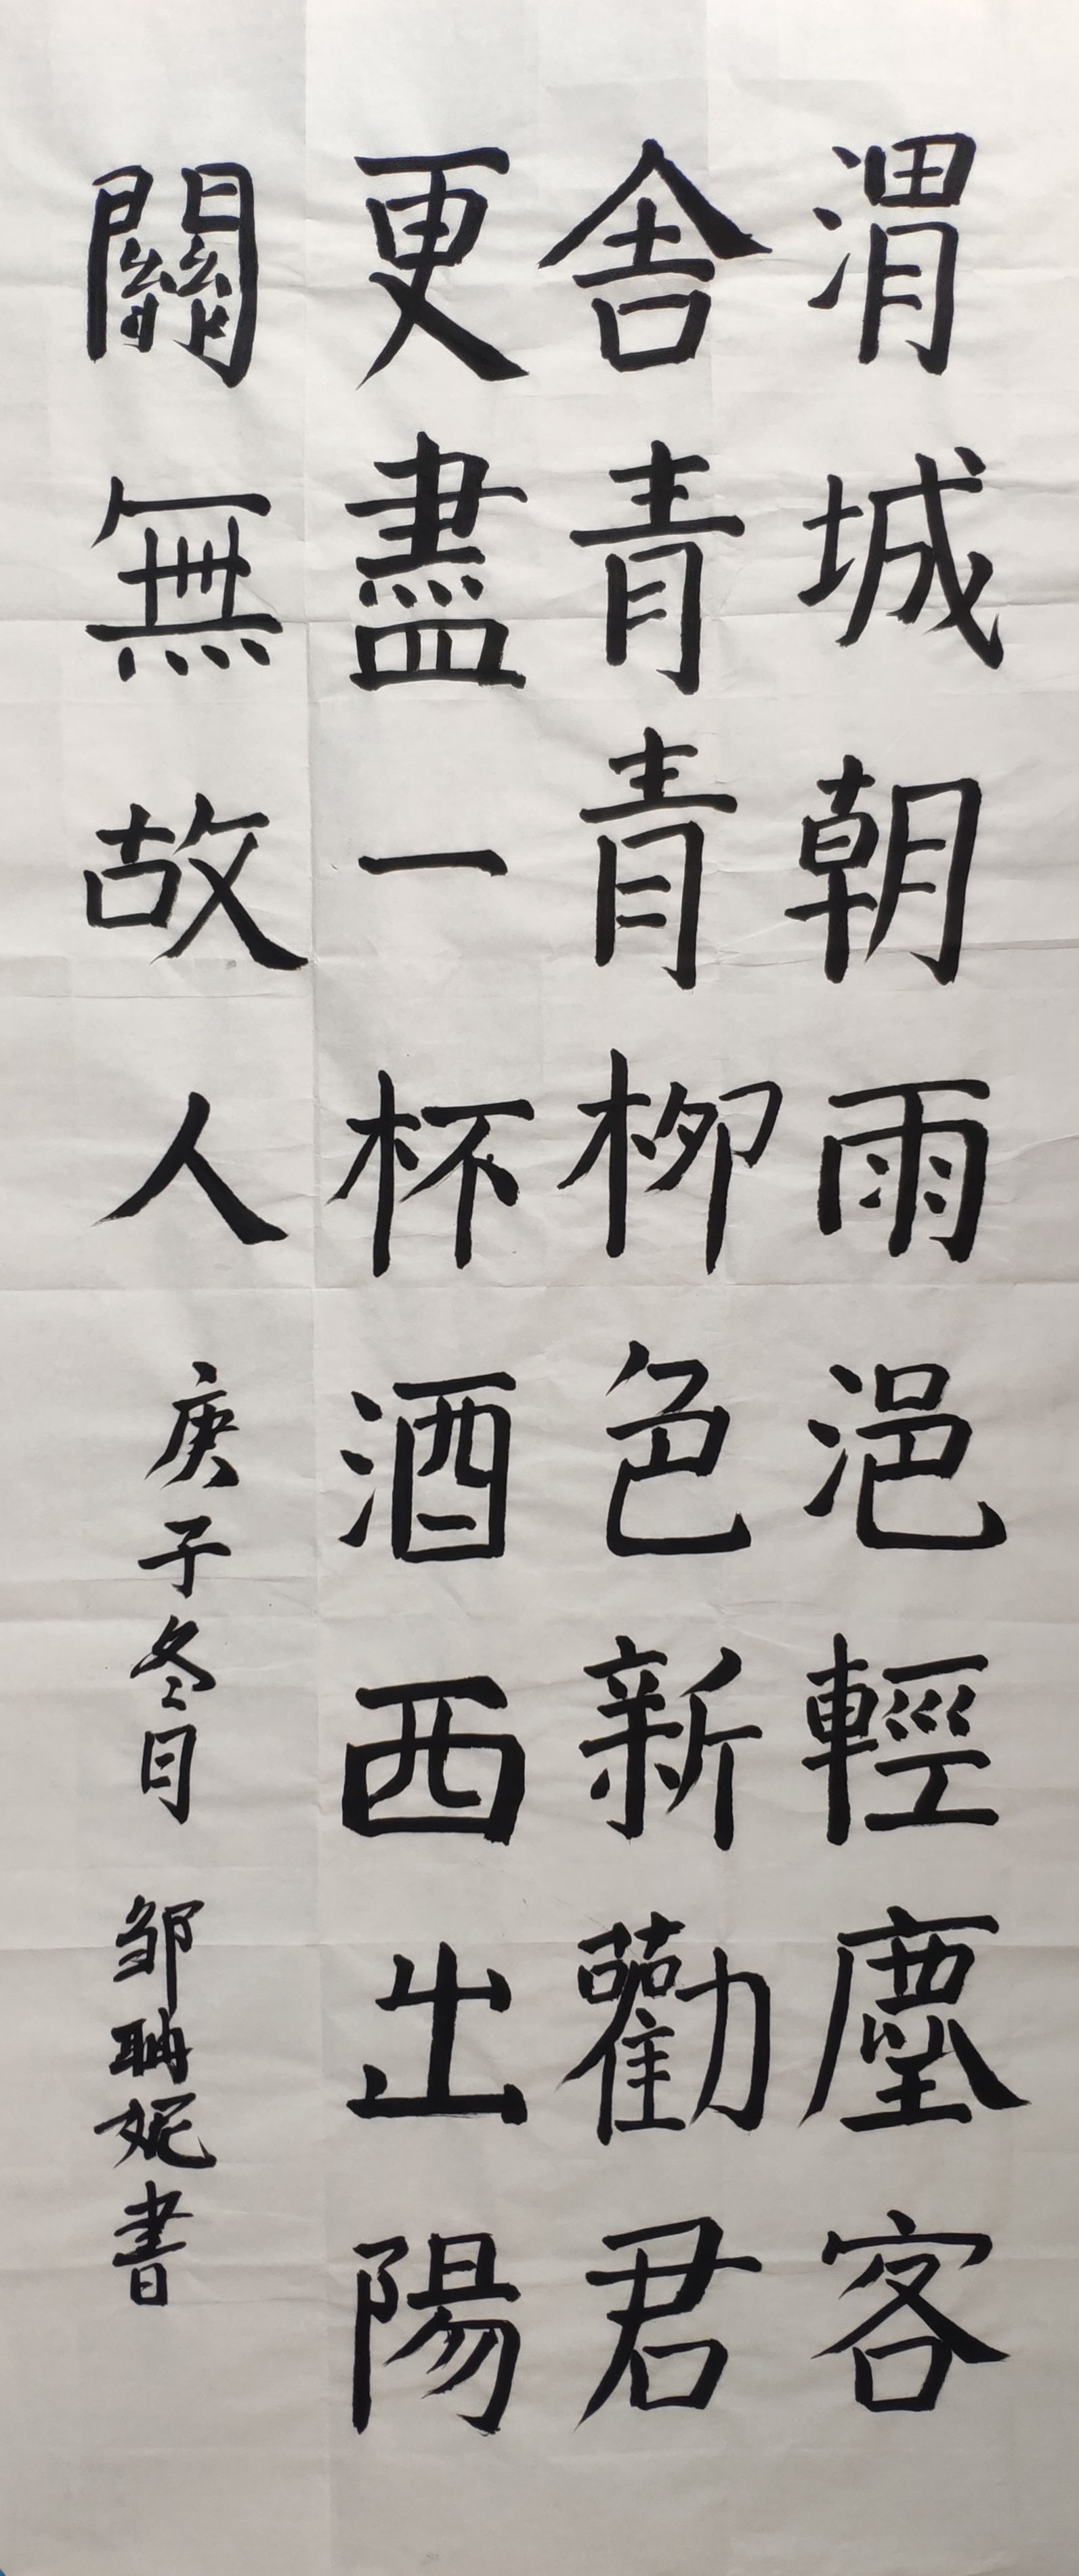 渭城朝雨浥輕塵客
舍青青柳色新勸君
更盡一杯酒西出陽
關無故人
庚子冬月 邹聃妮書